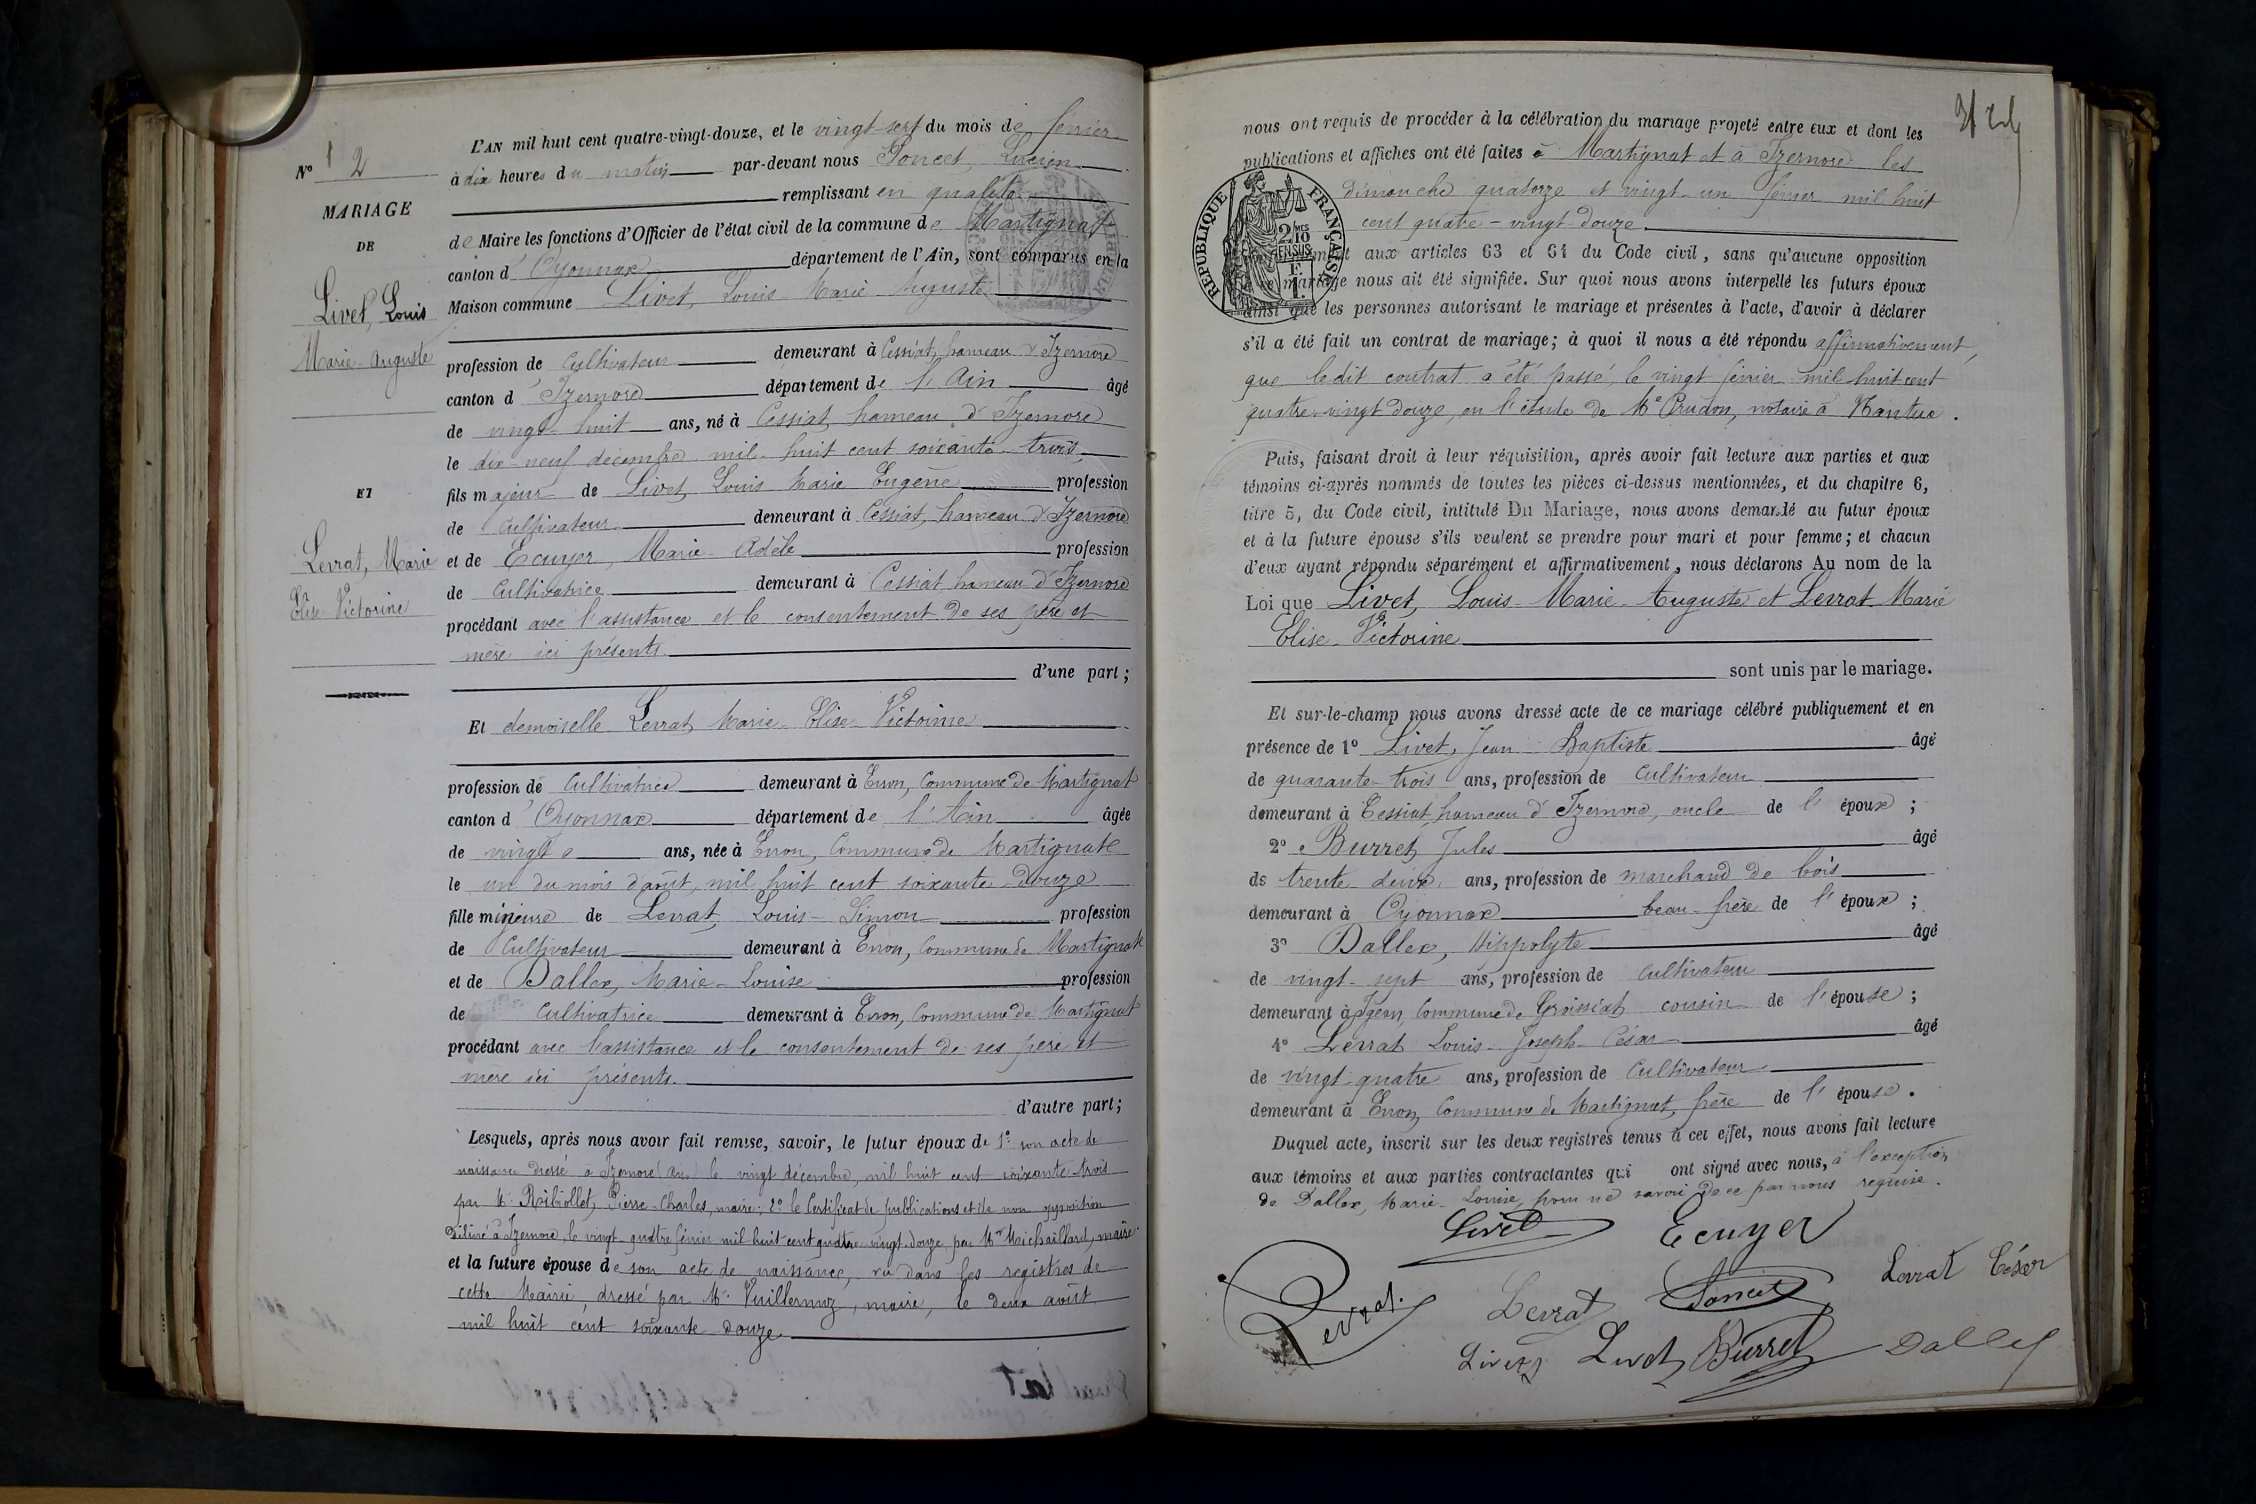 L'AN mil huit cent quatre-vingt-douze, et le vingt-sept du mois de février
N° 2
à dix heures du matin par-devant nous Poncet, Lucien
remplissant en qualité
MARIAGE
de Maire les fonctions d'Officier de l'état civil de la commune de Martignat
DE
canton d'Oyonnax département de l'Ain, sont comparus en la
Maison commune Livet, Louis-Marie-Auguste
Livet, Louis
Marie-Auguste
profession de Cultivateur demeurant à Cessiat, hameau d'Izernore
canton d'Izernore département de l'Ain âgé
de vingt-huit ans, né à Cessiat, hameau d'Izernore
le dix-neuf décembre mil-huit cent soixante-trois
ET
fils majeur de Livet, Louis Marie Eugène profession
de Cultivateur demeurant à Cessiat, hameau d'Izernore
Levrat, Marie
et de Ecuyer, Marie-Adèle profession
Elise-Victorine
de Cultivatrice demeurant à Cessiat hameau d'Izernore
procédant avec l'assistance et le consentement de ses père et
mère ici présents.
d'une part;
Et demoiselle Levrat, Marie-Elise-Victorine
profession de Cultivatrice demeurant à Evron, Commune de Martignat
canton d'Oyonnax département de l'Ain âgée
de vingt ans, née à Evron, Commune de Martignat
le un du mois d'août, mil huit cent soixante-douze
fille mineure de Levrat, Louis-Simon profession
de Cultivateur demeurant à Evron, Commune de Martignat
et de Dallex, Marie-Louise profession
de Cultivatrice demeurant à Evron, Commune de Martignat
procédant avec l'assistance et le consentement de ses père et
mère ici présents.
d'autre part;
Lesquels, après nous avoir fait remise, savoir, le futur époux de 1° son acte de
naissance dressé à Izernore le vingt décembre, mil huit cent soixante-trois
par M. Ribiollet, Pierre-Charles, maire; 2° le Certificat de publications et de non opposition
délivré à Izernore, le vingt-quatre février mil huit cent quatre-vingt-douze, par Mr Michaillard, maire
et la future épouse de son acte de naissance, vu dans les registres de
cette Mairie, dressé par M. Vuillermoz, maire, le deux août
mil huit cent soixante-douze.
nous ont requis de procéder à la célébration du mariage projeté entre eux et dont les
publications et affiches ont été faites à Martignat et à Izernore les
dimanche quatorze et vingt-un février mil huit
cent quatre-vingt-douze.
aux articles 63 et 64 du Code civil, sans qu'aucune opposition
mariage nous ait été signifiée. Sur quoi nous avons interpellé les futurs époux
ainsi que les personnes autorisant le mariage et présentes à l'acte, d'avoir à déclarer
RÉPUBLIQUE FRANÇAISE
2 10 MES
EN SUS
s'il a été fait un contrat de mariage; à quoi il nous a été répondu affirmativement,
que ledit contrat a été passé, le vingt février mil huit cent
quatre-vingt douze, en l'étude de Me Prudon, notaire à Nantua.
Puis, faisant droit à leur réquisition, après avoir fait lecture aux parties et aux
témoins ci-après nommés de toutes les pièces ci-dessus mentionnées, et du chapitre 6,
titre 5, du Code civil, intitulé Du Mariage, nous avons demandé au futur époux
et à la future épouse s'ils veulent se prendre pour mari et pour femme; et chacun
d'eux ayant répondu séparément et affirmativement, nous déclarons Au nom de la
Loi que Livet, Louis-Marie-Auguste et Levrat Marie
Elise-Victorine
sont unis par le mariage.
Et sur-le-champ nous avons dressé acte de ce mariage célébré publiquement et en
présence de 1° Livet, Jean-Baptiste âgé
de quarante-trois ans, profession de Cultivateur
demeurant à Cessiat, hameau d'Izernore, oncle de l'époux;
2° Burret, Jules âgé
de trente deux ans, profession de marchand de bois
demeurant à Oyonnax beau-frère de l'époux;
3° Dallex, Hippolyte âgé
de vingt-sept ans, profession de Cultivateur
demeurant à Commune de Groissiat cousin de l'épouse;
4° Levrat Louis-Joseph-César âgé
de vingt-quatre ans, profession de Cultivateur
demeurant à Evron, Commune de Martignat, frère de l'épouse.
Duquel acte, inscrit sur les deux registres tenus à cet effet, nous avons fait lecture
aux témoins et aux parties contractantes qui ont signé avec nous, à l'exception
de Dallex, Marie-Louise, pour ne savoir de ce par nous requise.
Livet Ecuyer
Levrat Levrat Poncet Levrat César
Livet Livet Burret Dallex